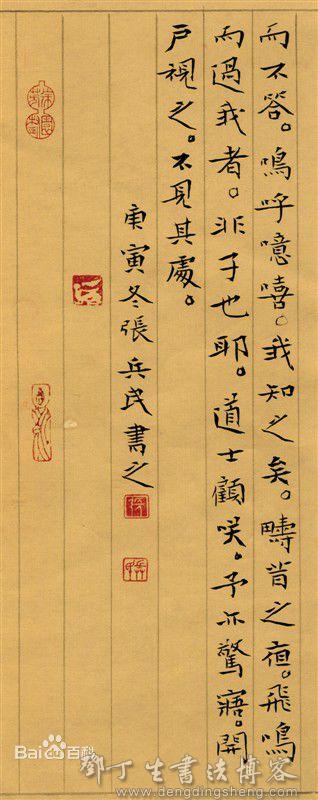 而不答。嗚呼噫嘻。我知之矣。疇昔之夜。飛鳴
而過我者。非子也耶。道士顧咲。予亦驚寤。開
戶視之。不見其處。
庚寅冬張兵民書之
Bai百科
鄧丁生書法博客
www.dengdingsheng.com